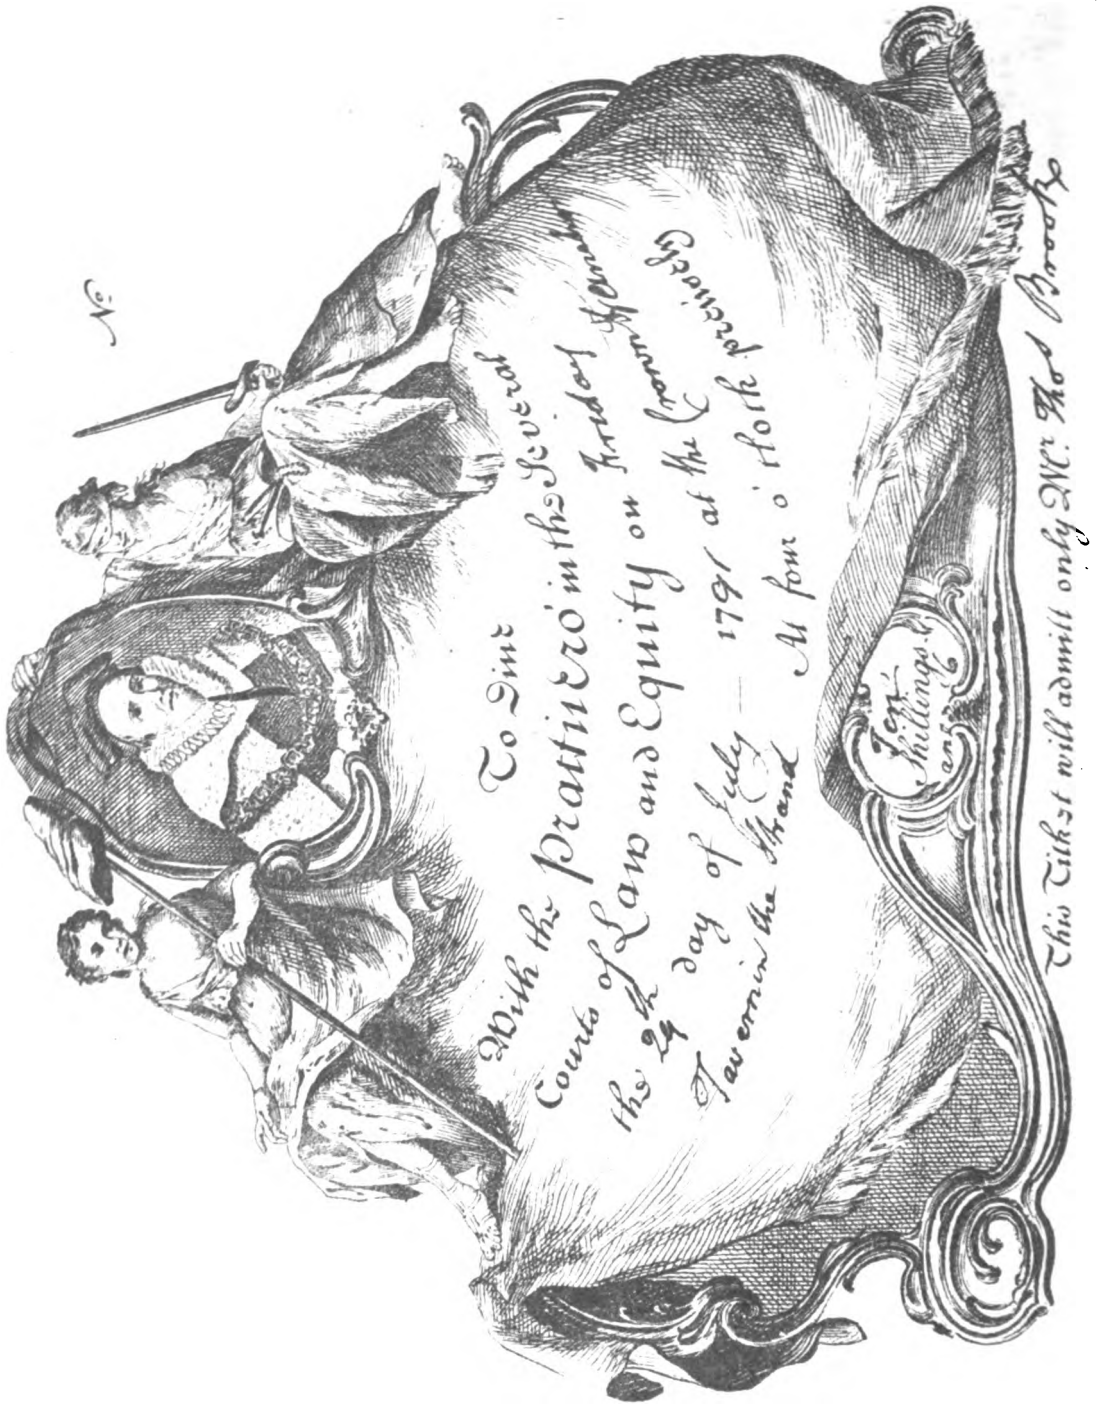 No.
To Dine
With the Practicers in the Several
Courts of Law and Equity on Friday
the 29th day of July — 1791 at the Crown & Anchor
Tavern in the Strand At four o'Clock precisely
Ten
Shillings
and 6
This Ticket will admitt only Mr. Thos